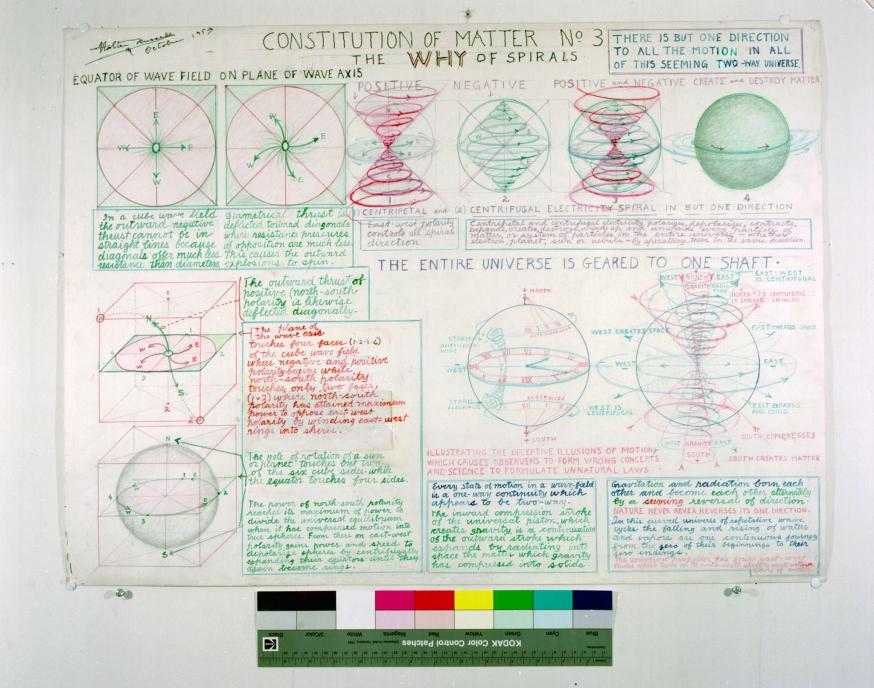 Walter Russell
October 1959
CONSTITUTION OF MATTER No 3
THE WHY OF SPIRALS
THERE IS BUT ONE DIRECTION
TO ALL THE MOTION IN ALL
OF THIS SEEMING TWO-WAY UNIVERSE
EQUATOR OF WAVE FIELD ON PLANE OF WAVE AXIS
POSITIVE NEGATIVE POSITIVE and NEGATIVE CREATE and DESTROY MATTER
E
W E
W
W E
W E
1 2 3 4
(1) CENTRIPETAL and (2) CENTRIFUGAL ELECTRICITY SPIRAL IN BUT ONE DIRECTION
In a cube wave field
the outward negative
thrust cannot be in
straight lines because
diagonals offer much less
resistance than diameters
Geometrical thrust is
deflected toward diagonals
where resistance pressures
of opposition are much less.
This causes the outward
explosions to spin.
East-west polarity
controls all spiral
direction
Centripetal and centrifugal electricity polarizes, depolarizes, contracts,
expands, creates, destroys, winds up and unwinds every particle of
matter, or system of particles in the entire universe, whether
electron, planet, sun or nebula - by spiralling them in the same direction
THE ENTIRE UNIVERSE IS GEARED TO ONE SHAFT.
The outward thrust of
positive (north-south
polarity is likewise
deflected diagonally.
The plane of
the wave axis
touches four faces (1-2-3-4)
of the cube wave field
where negative and positive
polarity begins while
north-south polarity
touches only two faces,
(1-2) where north-south
polarity has attained maximum
power to oppose east-west
polarity by winding east-west
rings into spheres.
The pole of rotation of a sun
or planet touches but two
of the six cube sides-while
the equator touches four sides.
The power of north-south polarity
reaches its maximum of power to
divide the universal equilibrium
when it has compressed motion into
true spheres. From then on east-west
polarity gains power and speed to
depolarize spheres by centrifugally
expanding their equators until they
again become rings.
NORTH
WEST
EAST
CLOCKWISE
SOUTH
WEST NORTH EAST
GRAVITY
EAST-WEST
IS CENTRIFUGAL
WEST CREATES SPACE
EAST CREATES SPACE
WEST
EAST
WEST IS
CENTRIFUGAL
EAST EXPANDS
AND COOLS
WEST GRAVITY EAST
SOUTH
SOUTH COMPRESSES
SOUTH CREATES MATTER
ILLUSTRATING THE DECEPTIVE ILLUSIONS OF MOTION
WHICH CAUSES OBSERVERS TO FORM WRONG CONCEPTS
AND SCIENCE TO FORMULATE UNNATURAL LAWS.
Every state of motion in a wave-field
is a one-way continuity which
appears to be two-way.
The inward compression stroke
of the universal piston, which
creates gravity is a continuation
of the outward stroke which
expands by radiating into
space the matter which gravity
has compressed into solids.
Gravitation and radiation born each
other and become each other alternately
by a seeming reversal of direction-
NATURE NEVER REVERSES ITS ONE DIRECTION.
In this curved universe of repetitive wave
cycles the falling and rising of water
and vapors are one continuous journey
from the zero of their beginnings to their
zero endings.
KODAK Color Control Patches
Blue Cyan Green Yellow Red Magenta White 3/Color Black